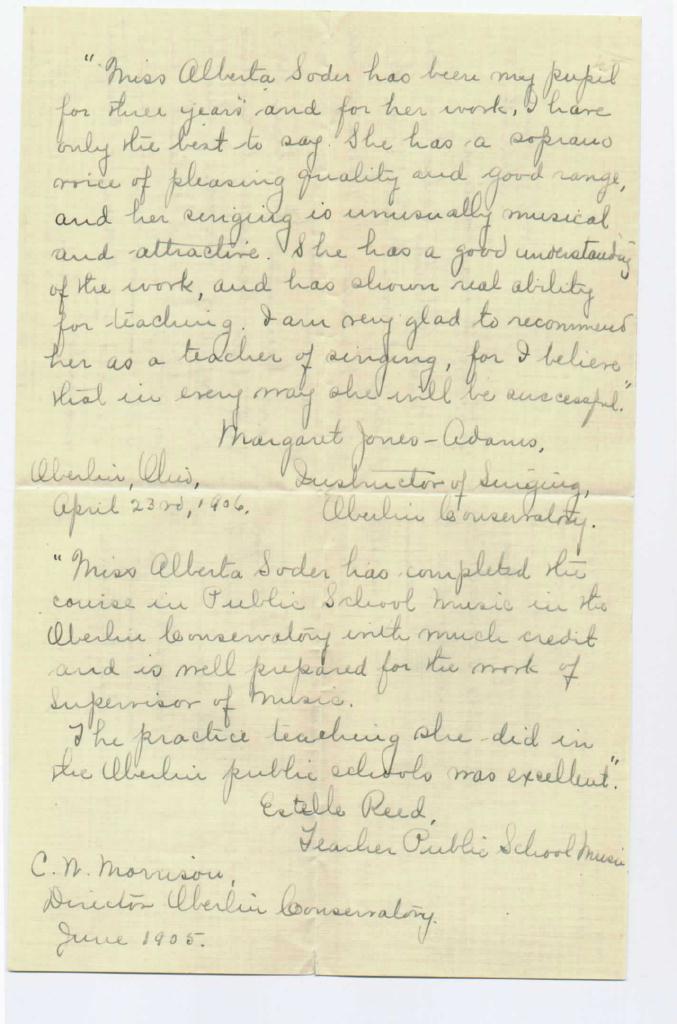 "Miss Alberta Soder has been my pupil
for three years and for her work, I have
only the best to say. She has a soprano
voice of pleasing quality and good range,
and her singing is unusually musical
and attractive. She has a good understanding
of the work, and has shown real ability
for teaching. I am very glad to recommend
her as a teacher of singing, for I believe
that in every way she will be successful."
Margaret Jones-Adams,
Oberlin, Ohio, Instructor of Singing,
April 23rd, 1906. Oberlin Conservatory.
"Miss Alberta Soder has completed the
course in Public School Music in the
Oberlin Conservatory with much credit
and is well prepared for the work of
Supervisor of Music.
The practice teaching she did in
the Oberlin public schools was excellent".
Estelle Reed,
Teacher Public School Music
C. W. Morrison,
Director Oberlin Conservatory.
June 1905.